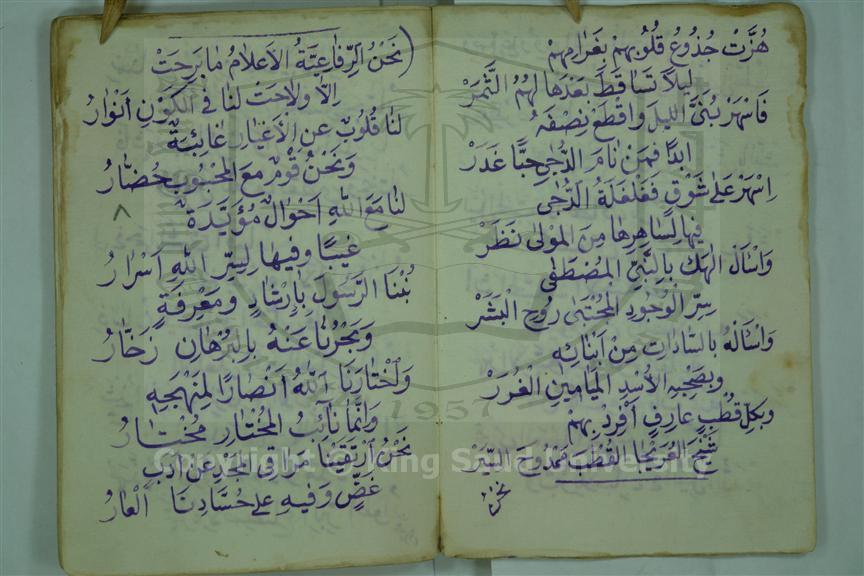 هُزَّتْ جُذُوعُ قُلُوبِهِمْ بِغَرَامِهِمْ
لَيْلًا تَسَاقَطَ بَعْدَهَا لَهُمُ الثَّمَرْ
فَاسْهَرْ بُنَيَّ اللَّيْلَ وَاقْطَعْ نِصْفَهُ
اَبَدًا فَمَنْ نَامَ الدُّجٰى حِبًّا غَدَرْ
اِسْهَرْ عَلٰى شَوْقٍ فَغَلْغَلَةُ الدُّجٰى
فِيهَا لِسَاهِرِهَا مِنَ الْمَوْلٰى نَظَرْ
وَاسْاَلْ اِلٰهَكَ بِالنَّبِيِّ الْمُصْطَفٰى
سِرِّ الْوُجُودِ الْمُجْتَبٰى رُوحِ الْبَشَرْ
وَاسْاَلْهُ بِالسَّادَاتِ مِنْ اَبْنَائِهِ
وَبِصَحْبِهِ الْاُسْدِ الْمَيَامِينِ الْغُرَرْ
وَبِكُلِّ قُطْبٍ عَارِفٍ اَفْرِدْ بِهِمْ
شَيْخَ الْعُرَيْجَا الْقُطْبَ مَمْدُوحَ السِّيَرْ
نحن
(نَحْنُ الرِّفَاعِيَّةُ الْاَعْلَامُ مَا بَرِحَتْ
اِلَّا وَلَاحَتْ لَنَا فِي الْكَوْنِ اَنْوَارُ
لَنَا قُلُوبٌ عَنِ الْاَغْيَارِ غَائِبَةٌ
وَنَحْنُ قَوْمٌ مَعَ الْمَحْبُوبِ حُضَّارُ
لَنَا مَعَ اللّٰهِ اَحْوَالٌ مُؤَيَّدَةٌ
غَيْبًا وَفِيهَا لِسِرِّ اللّٰهِ اَسْرَارُ
نُبْنَا الرَّسُولَ بِاِرْشَادٍ وَمَعْرِفَةٍ
وَبَحْرُنَا عَنْهُ بِالْبُرْهَانِ زَخَّارُ
وَاخْتَارَنَا اللّٰهُ اَنْصَارًا لِمَنْهَجِهِ
وَاِنَّمَا نَائِبُ الْمُخْتَارِ مُخْتَارُ
نَحْنُ ارْتَقَيْنَا مَرَاقِى الْمَجْدِ عَنْ اَدَبٍ
غَضٍّ وَفِيهِ عَلٰى حُسَّادِنَا الْعَارُ
1957
Copyright © King Saud University